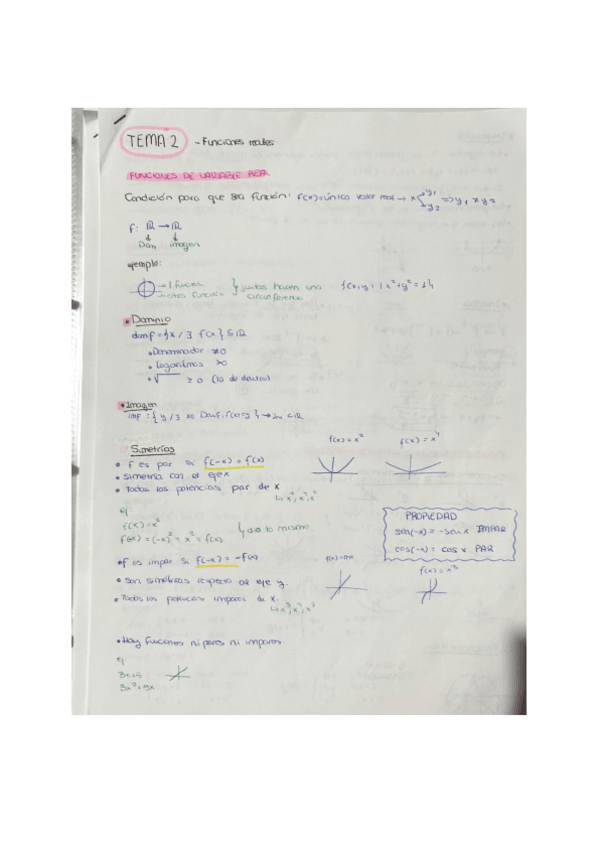 TEMA 2 - Funciones reales
FUNCIONES DE VARIABLE REAL
Condición para que sea función: f(x)=único valor real → x y₁ y₂ ⇒ y₁ ≠ y₂
f: ℝ → ℝ
Dom imagen
ejemplo:
→ 1 función
→ otra función } juntas hacen una circunferencia {(x,y) / x²+y²=1}
• Dominio
domf = {x / ∃ f(x)} ⊆ ℝ
• Denominador ≠0
• Logaritmos >0
• √ ≥ 0 (lo de dentro)
• Imagen
Imf = { y / ∃ x∈ Domf, f(x)=y }
Simetrías
f(x) = x² f(x) = x⁴
• f es par si f(-x) = f(x)
• Simetría con el eje x
• Todas las potencias par de x
ej
f(x) = x²
f(-x) = (-x)² = x² = f(x) da lo mismo
PROPIEDAD
sen(-x) = -sen x IMPAR
cos(-x) = cos x PAR
• f es impar si f(-x) = -f(x)
f(x) = x³
• Son simétricas respecto al eje y.
• Todas las potencias impares de x.
• Hay funciones ni pares ni impares.
ej